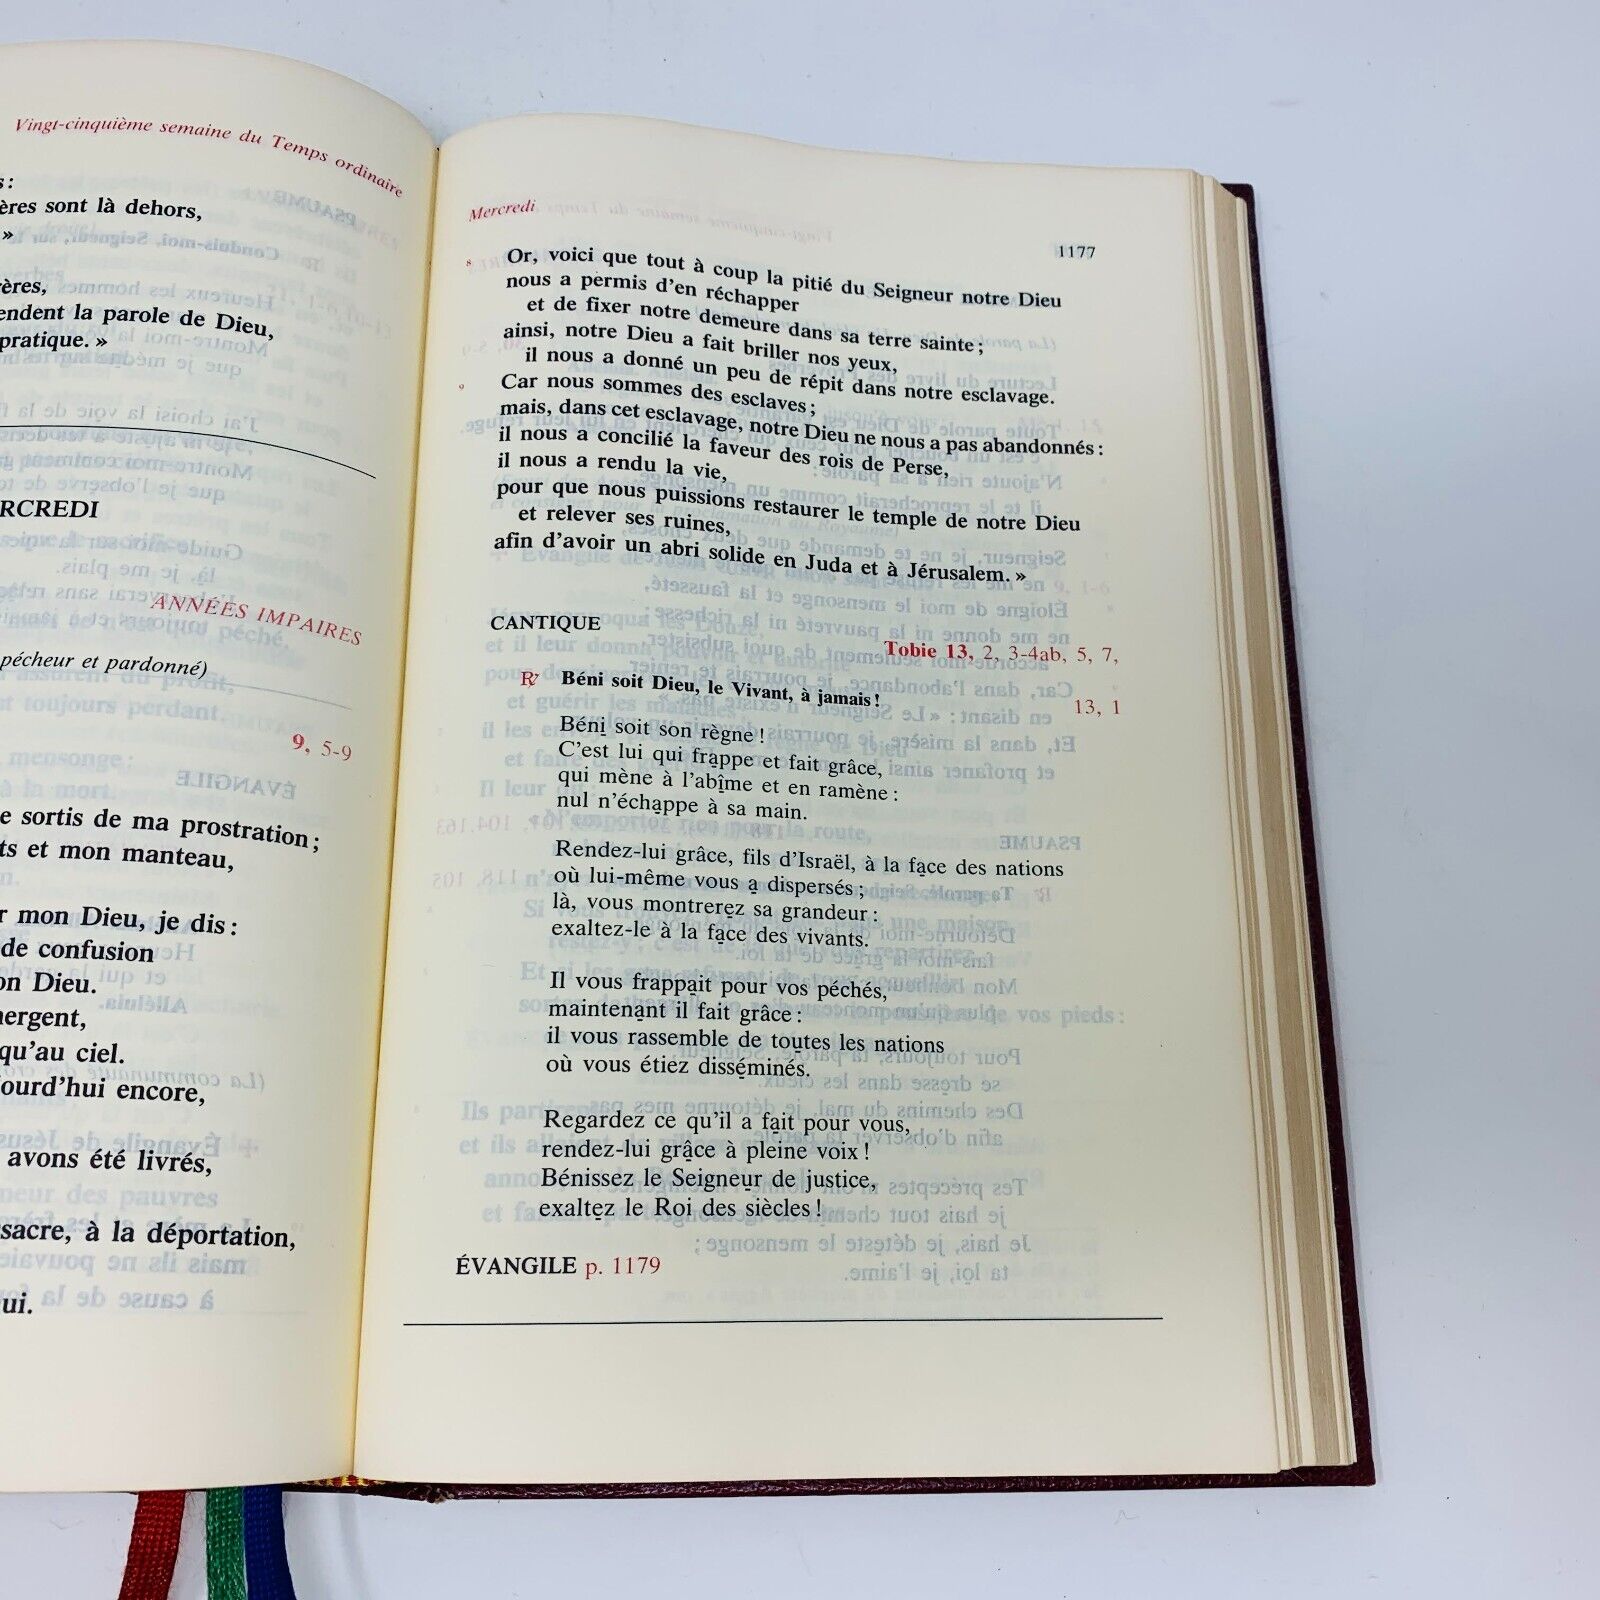 Vingt-cinquième semaine du Temps ordinaire
s :
ères sont là dehors,
»
ères,
endent la parole de Dieu,
pratique. »
RCREDI
ANNÉES IMPAIRES
pécheur et pardonné)
9, 5-9
e sortis de ma prostration ;
ts et mon manteau,
r mon Dieu, je dis :
de confusion
on Dieu.
mergent,
qu'au ciel.
jourd'hui encore,
avons été livrés,
sacre, à la déportation,
ui.
Mercredi
1177
8 Or, voici que tout à coup la pitié du Seigneur notre Dieu
nous a permis d'en réchapper
et de fixer notre demeure dans sa terre sainte ;
ainsi, notre Dieu a fait briller nos yeux,
il nous a donné un peu de répit dans notre esclavage.
9 Car nous sommes des esclaves ;
mais, dans cet esclavage, notre Dieu ne nous a pas abandonnés :
il nous a concilié la faveur des rois de Perse,
il nous a rendu la vie,
pour que nous puissions restaurer le temple de notre Dieu
et relever ses ruines,
afin d'avoir un abri solide en Juda et à Jérusalem. »
CANTIQUE
Tobie 13, 2, 3-4ab, 5, 7,
℟ Béni soit Dieu, le Vivant, à jamais !
13, 1
Béni soit son règne !
C'est lui qui frappe et fait grâce,
qui mène à l'abîme et en ramène :
nul n'échappe à sa main.
Rendez-lui grâce, fils d'Israël, à la face des nations
où lui-même vous a dispersés ;
là, vous montrerez sa grandeur :
exaltez-le à la face des vivants.
Il vous frappait pour vos péchés,
maintenant il fait grâce :
il vous rassemble de toutes les nations
où vous étiez disséminés.
Regardez ce qu'il a fait pour vous,
rendez-lui grâce à pleine voix !
Bénissez le Seigneur de justice,
exaltez le Roi des siècles !
ÉVANGILE p. 1179